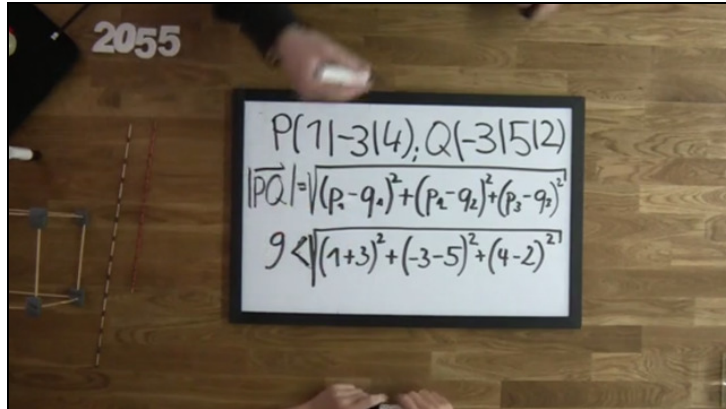 2055
P(1|-3|4); Q(-3|5|2)
|PQ⃗| = √((p₁-q₁)²+(p₂-q₂)²+(p₃-q₃)²)
9 < √((1+3)²+(-3-5)²+(4-2)²)